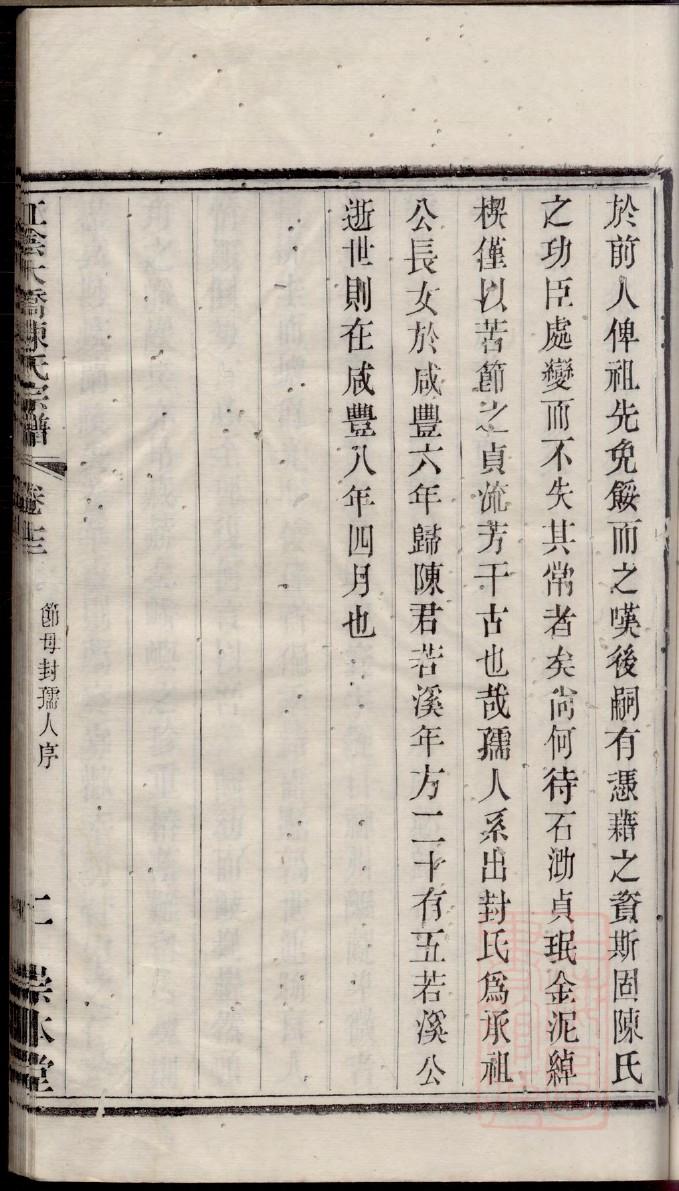 於前人俾祖先免餒而之嘆後嗣有憑藉之資斯固陳氏
之功臣處變而不失其常者矣尚何待石泐貞珉金泥綽
楔僅以苦節之貞流芳千古也哉孺人系出封氏為承祖
公長女於咸豐六年歸陳君若溪年方二十有五若溪公
逝世則在咸豐八年四月也
江陰大橋陳氏宗譜
節母封孺人序
二
崇本堂